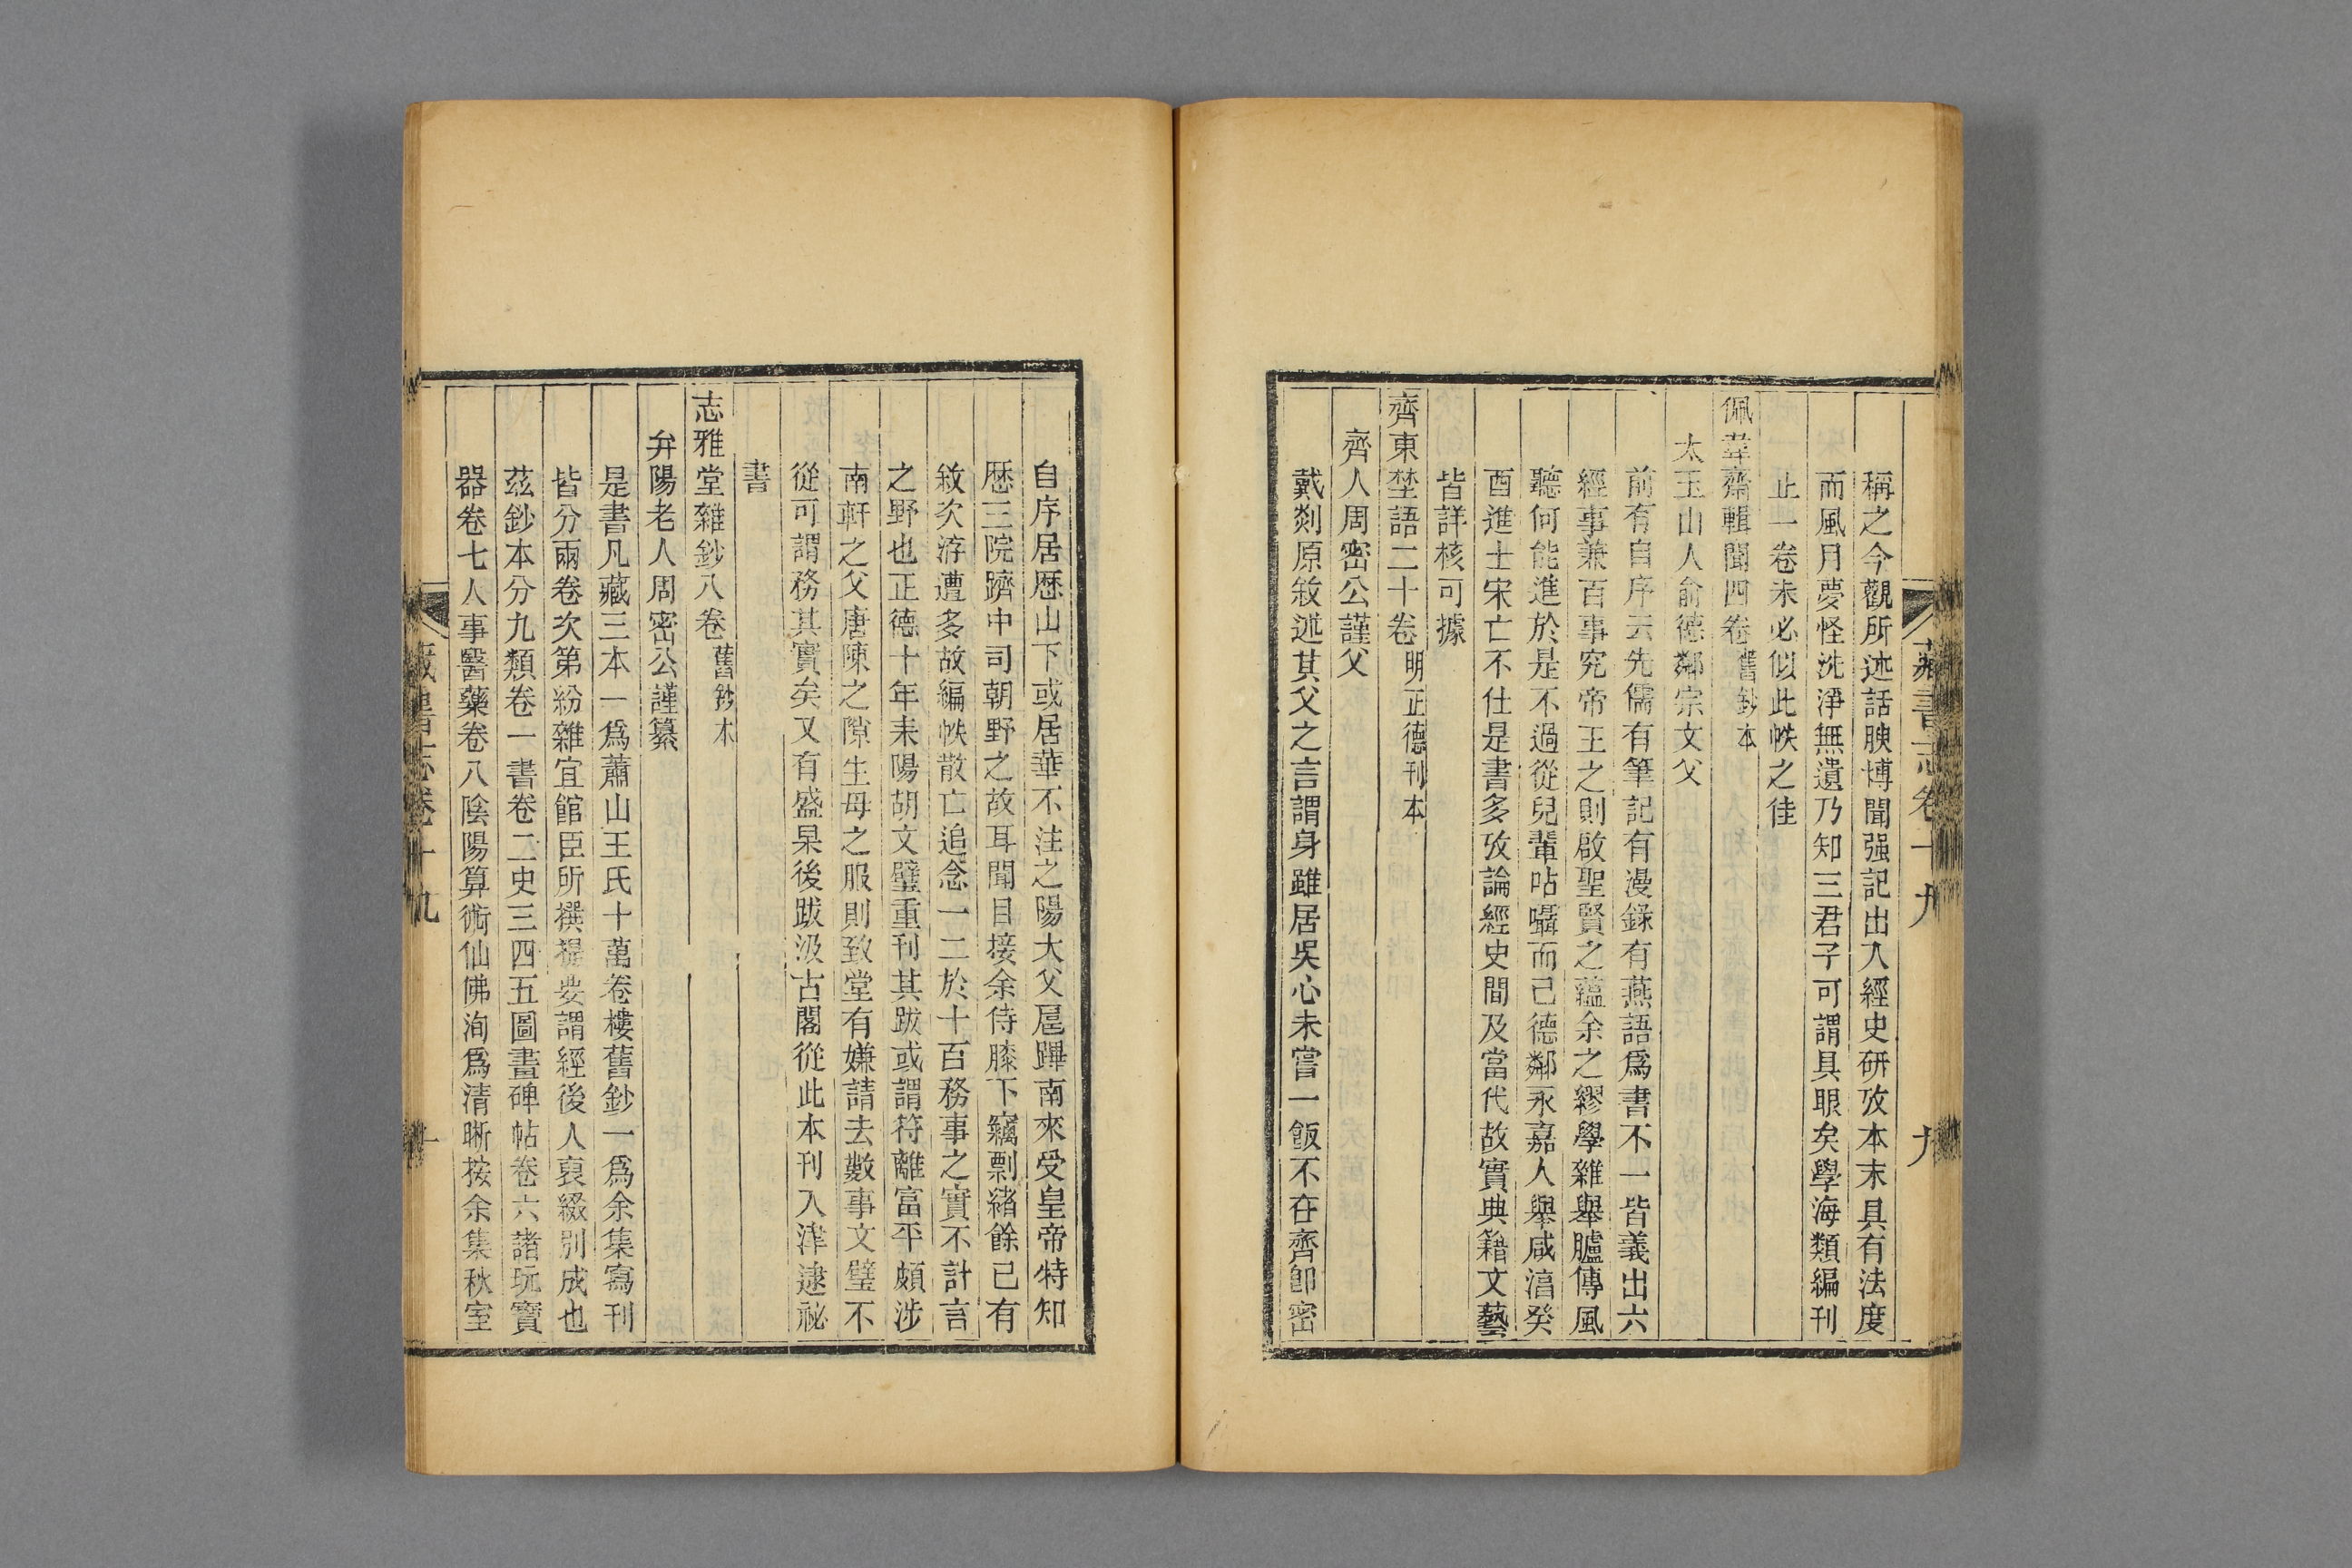 藏書志卷十九
九
稱之今觀所述話腴博聞强記出入經史研攷本末具有法度
而風月夢怪洗淨無遺乃知三君子可謂具眼矣學海類編刊
止一卷未必似此帙之佳
佩韋齋輯聞四卷舊鈔本
太玉山人俞德鄰宗文父
前有自序云先儒有筆記有漫錄有燕語爲書不一皆義出六
經事兼百事究帝王之則啟聖賢之蘊余之繆學雜舉臚傳風
聽何能進於是不過從兒輩呫囁而已德鄰永嘉人舉咸淳癸
酉進士宋亡不仕是書多攷論經史間及當代故實典籍文藝
皆詳核可據
齊東埜語二十卷明正德刊本
齊人周密公謹父
戴剡原敘述其父之言謂身雖居吳心未嘗一飯不在齊卽密
自序居歷山下或居華不注之陽大父扈蹕南來受皇帝特知
歷三院躋中司朝野之故耳聞目接余侍膝下竊剽緖餘已有
敘次洊遭多故編帙散亡追念一二於十百務事之實不計言
之野也正德十年耒陽胡文璧重刊其跋或謂符離富平頗涉
南軒之父唐陳之隙生母之服則致堂有嫌請去數事文璧不
從可謂務其實矣又有盛杲後跋汲古閣從此本刊入津逮祕
書
志雅堂雜鈔八卷舊鈔本
弁陽老人周密公謹纂
是書凡藏三本一爲蕭山王氏十萬卷樓舊鈔一爲余集寫刊
皆分兩卷次第紛雜宜館臣所撰提要謂經後人裒綴別成也
茲鈔本分九類卷一書卷二史三四五圖畫碑帖卷六諸玩寶
器卷七人事醫藥卷八陰陽算術仙佛洵爲清晰按余集秋室
藏書志卷十九
十